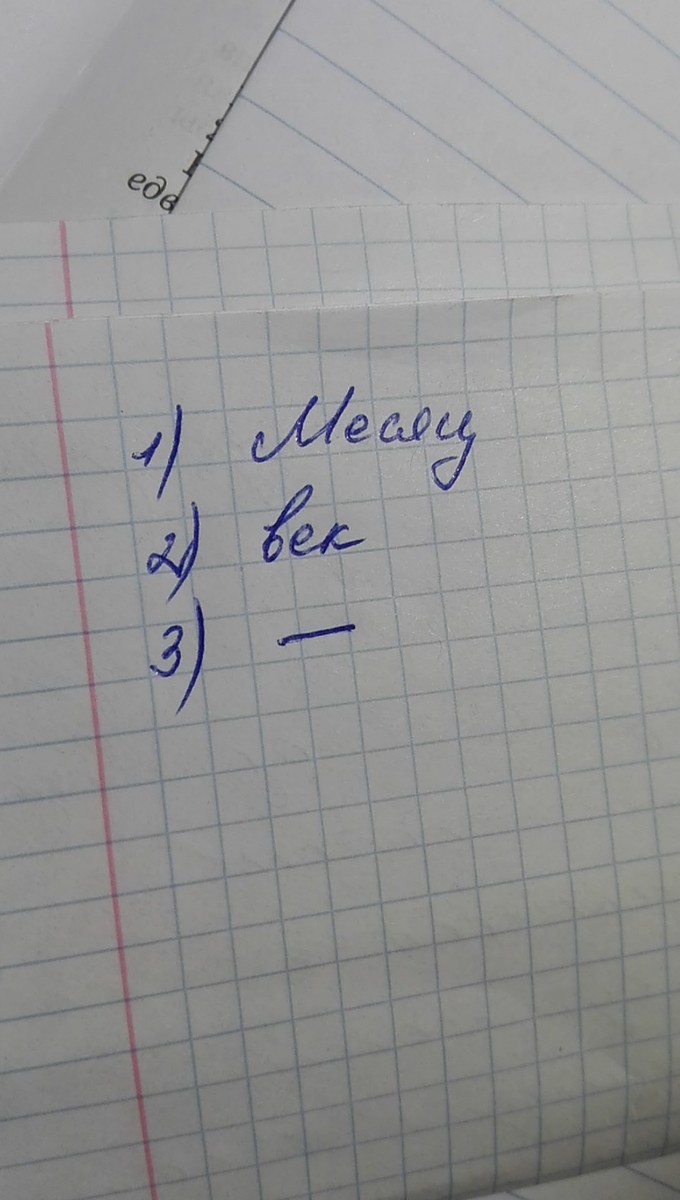 едв
1) Месяц
2) век
3) —